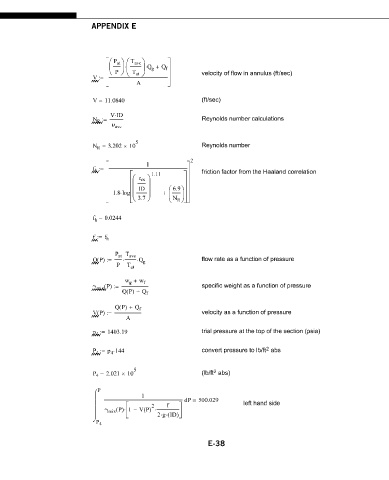 APPENDIX E
V := [ (P_at / P) · (T_ave / T_at) · Q_g + Q_f ] / A velocity of flow in annulus (ft/sec)
V = 11.0840 (ft/sec)
N_R := V·ID / ν_ave Reynolds number calculations
N_R = 3.202 × 10^5 Reynolds number
friction factor from the Haaland correlation
f_h = 0.0244
f := f_h
Q(P) := (P_at / P) · (T_ave / T_at) · Q_g flow rate as a function of pressure
(P) := (w_g + w_f) / (Q(P) + Q_f) specific weight as a function of pressure
V(P) := (Q(P) + Q_f) / A velocity as a function of pressure
:= 1403.19 trial pressure at the top of the section (psia)
·144 convert pressure to lb/ft² abs
= 2.021 × 10^5 (lb/ft² abs)
dP = 500.029 left hand side
E-38